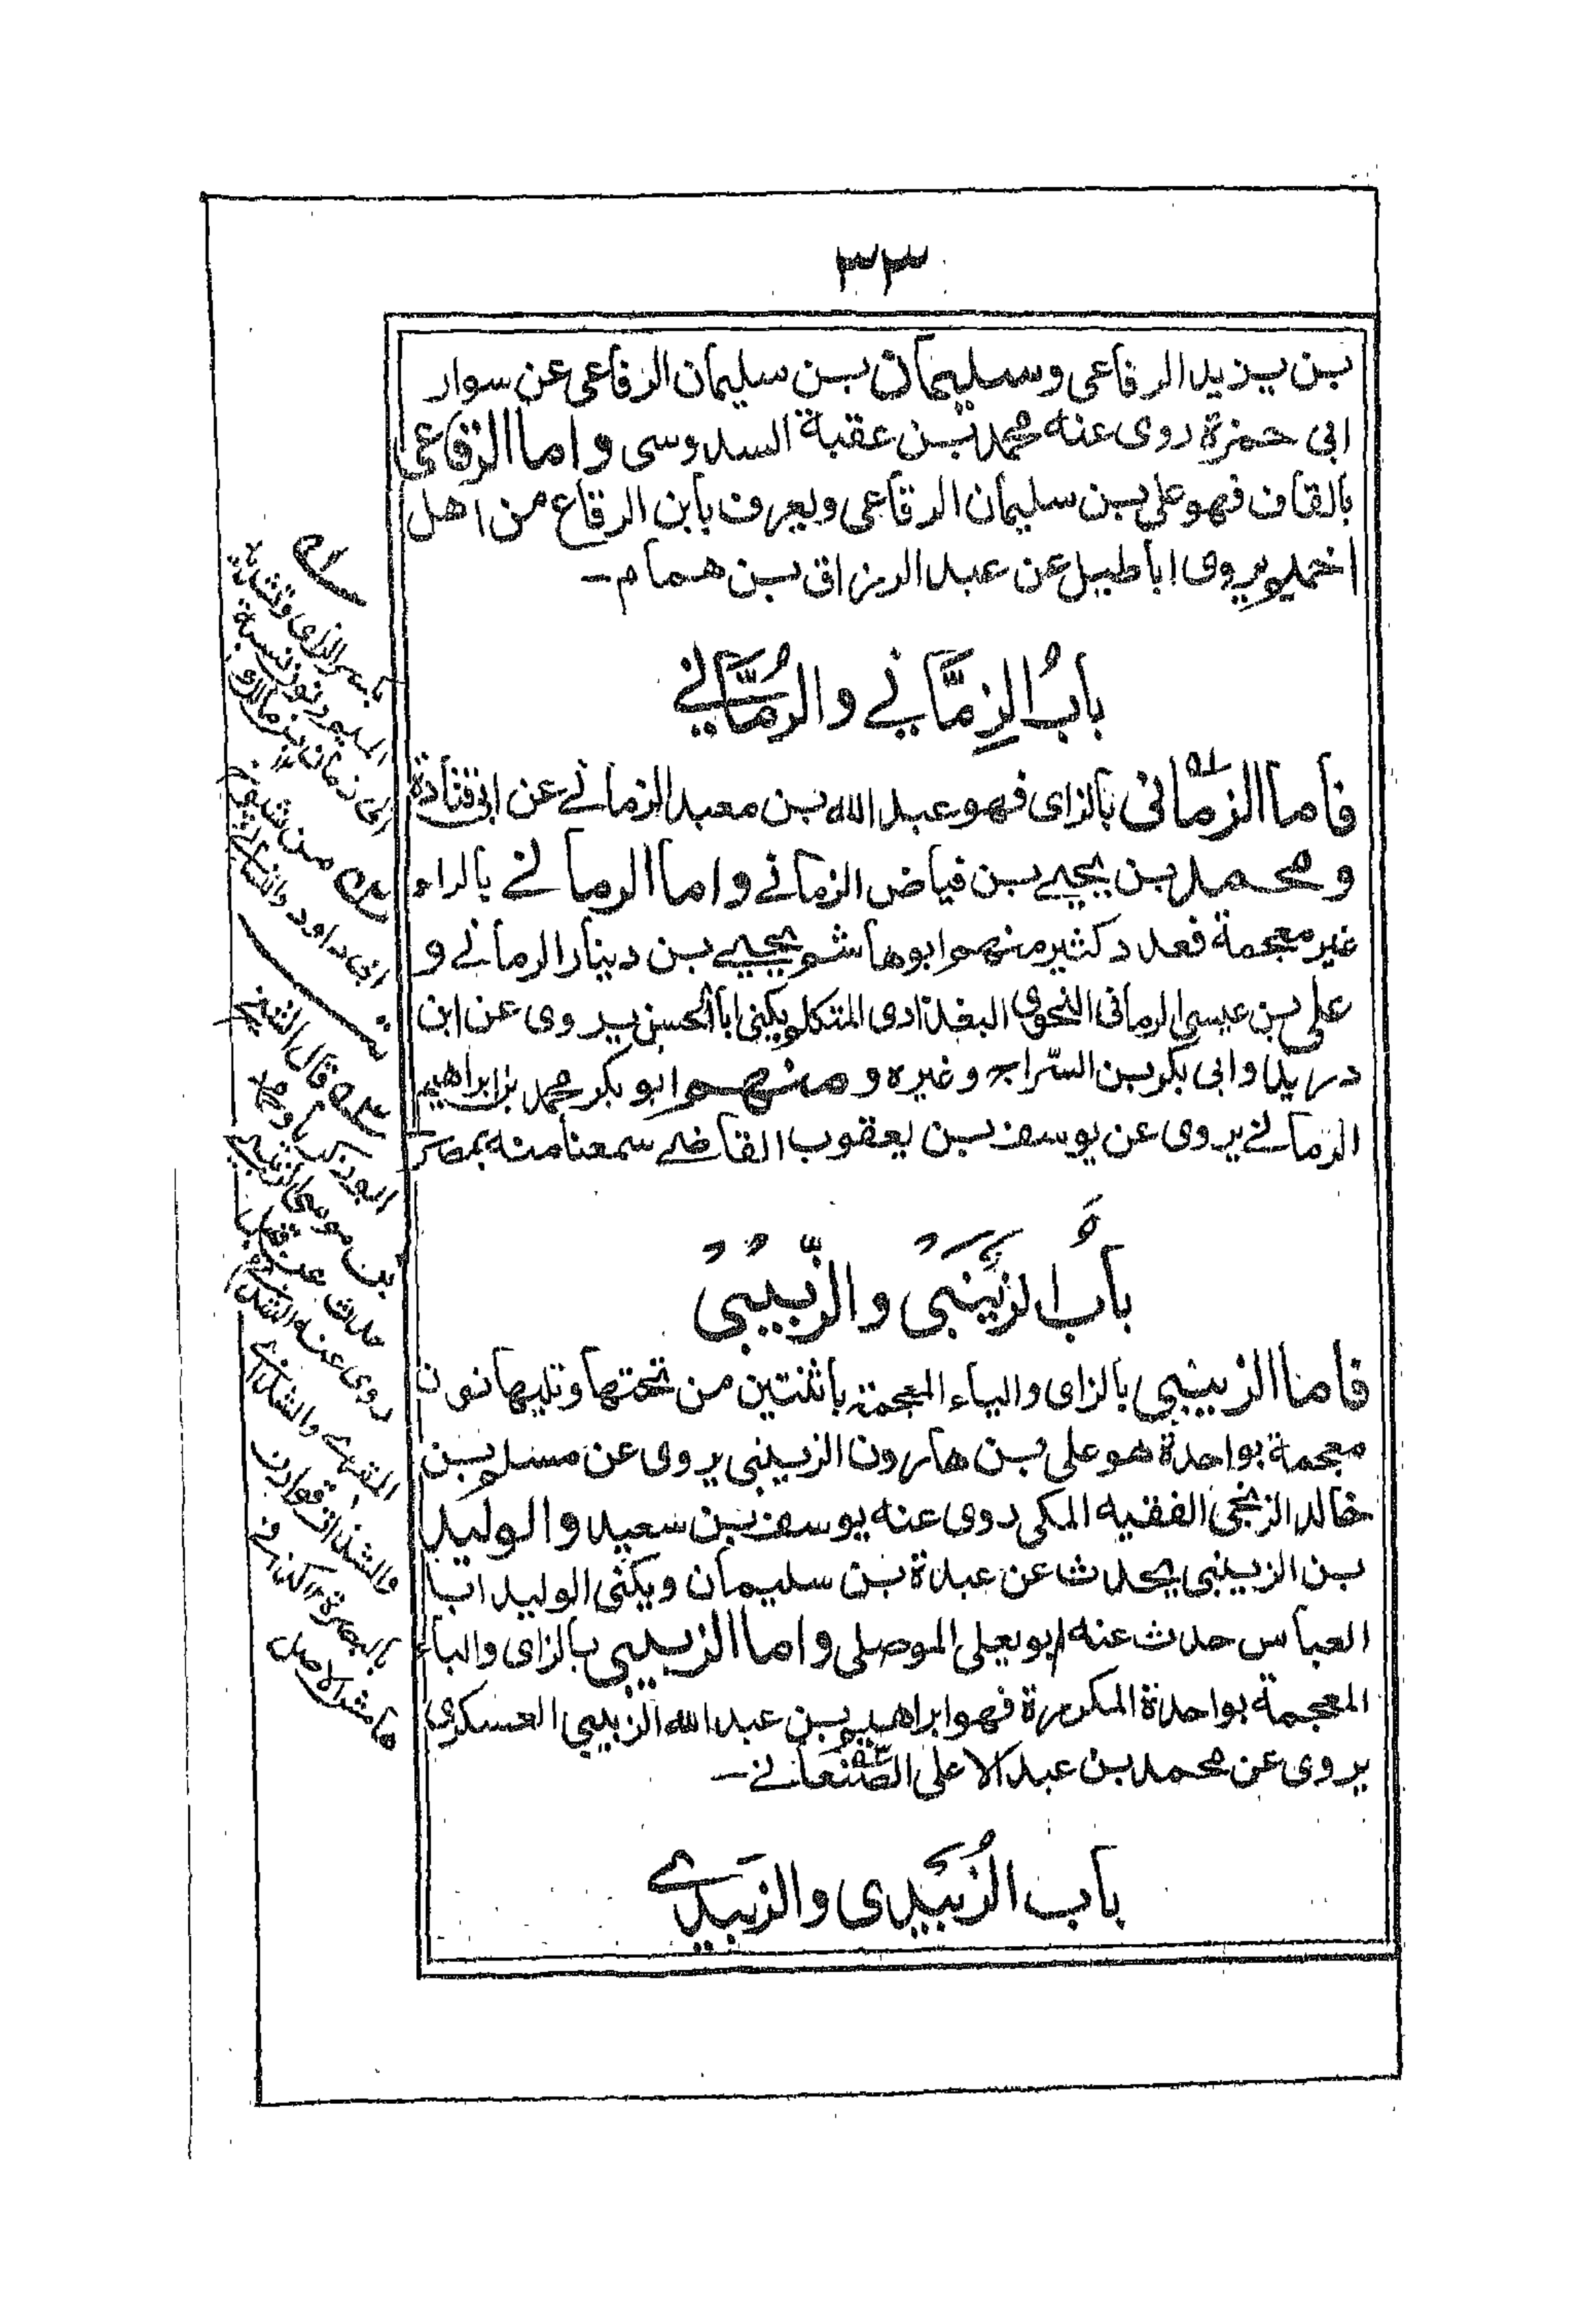 ٣٣
بن يزيد الرفاعى وسليمان بن سليمان الرفاعى عن سوار
ابى حمزة روى عنه محمد بن عقبة السدوسى واما الرقاعى
بالقاف فهو على بن سليمان الرقاعى ويعرف بابن الرقاع من اهل
اخميم يروى اباطيل عن عبد الرزاق بن همام
بابُ الزِمَّانے والرُمَّانے
فاما الزمانى بالزاى فهو عبد الله بن معبد الزمانے عن ابى قتادة
و محمد بن يحيے بن فياض الزمانے واما الرمانے بالراء
غير معجمة فعدد كثير منهم ابو هاشم يحيے بن دينار الرمانے و
على بن عيسى الرمانى النحوى البغدادى المتكلم يكنى ابا الحسن يروى عن ابن
دريد وابى بكر بن السّراج وغيره ومنهم ابو بكر محمد بن ابراهيم
الرمانے يروى عن يوسف بن يعقوب القاضے سمعنا منه بمصر
بابُ الزَيْنَبى والزَّبيبى
فاما الزينبى بالزاى والياء المعجمة باثنتين من تحتها وتليها نون
معجمة بواحدة هو على بن هارون الزينبى يروى عن مسلم بن
خالد الزنجى الفقيه المكى روى عنه يوسف بن سعيد والوليد
بن الزينبى يحدث عن عبدة بن سليمان ويكنى الوليد ابا
العباس حدث عنه ابو يعلى الموصلى واما الزبيبى بالزاى والباء
المعجمة بواحدة المكررة فهو ابراهيم بن عبد الله الزبيبى العسكرى
يروى عن محمد بن عبد الاعلى الصنعانے
باب الزُبَيدى والزَبيدے
بكسر الزاى وتشديد
الميم ونون نسبة
الى زمان بن مالك
من شيوخ
ابى داود والنسائى
قال الشيخ
ابو زكريا
بن موسى
حدث عن
روى عنه
بالبصرة
هامش الاصل